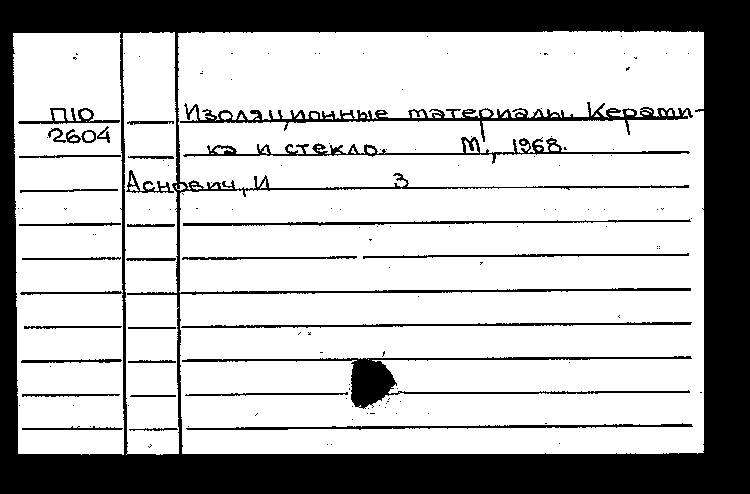 П10 Изоляционные материалы. Керами-
2604 ка и стекло. М., 1968.
Аснович, И З